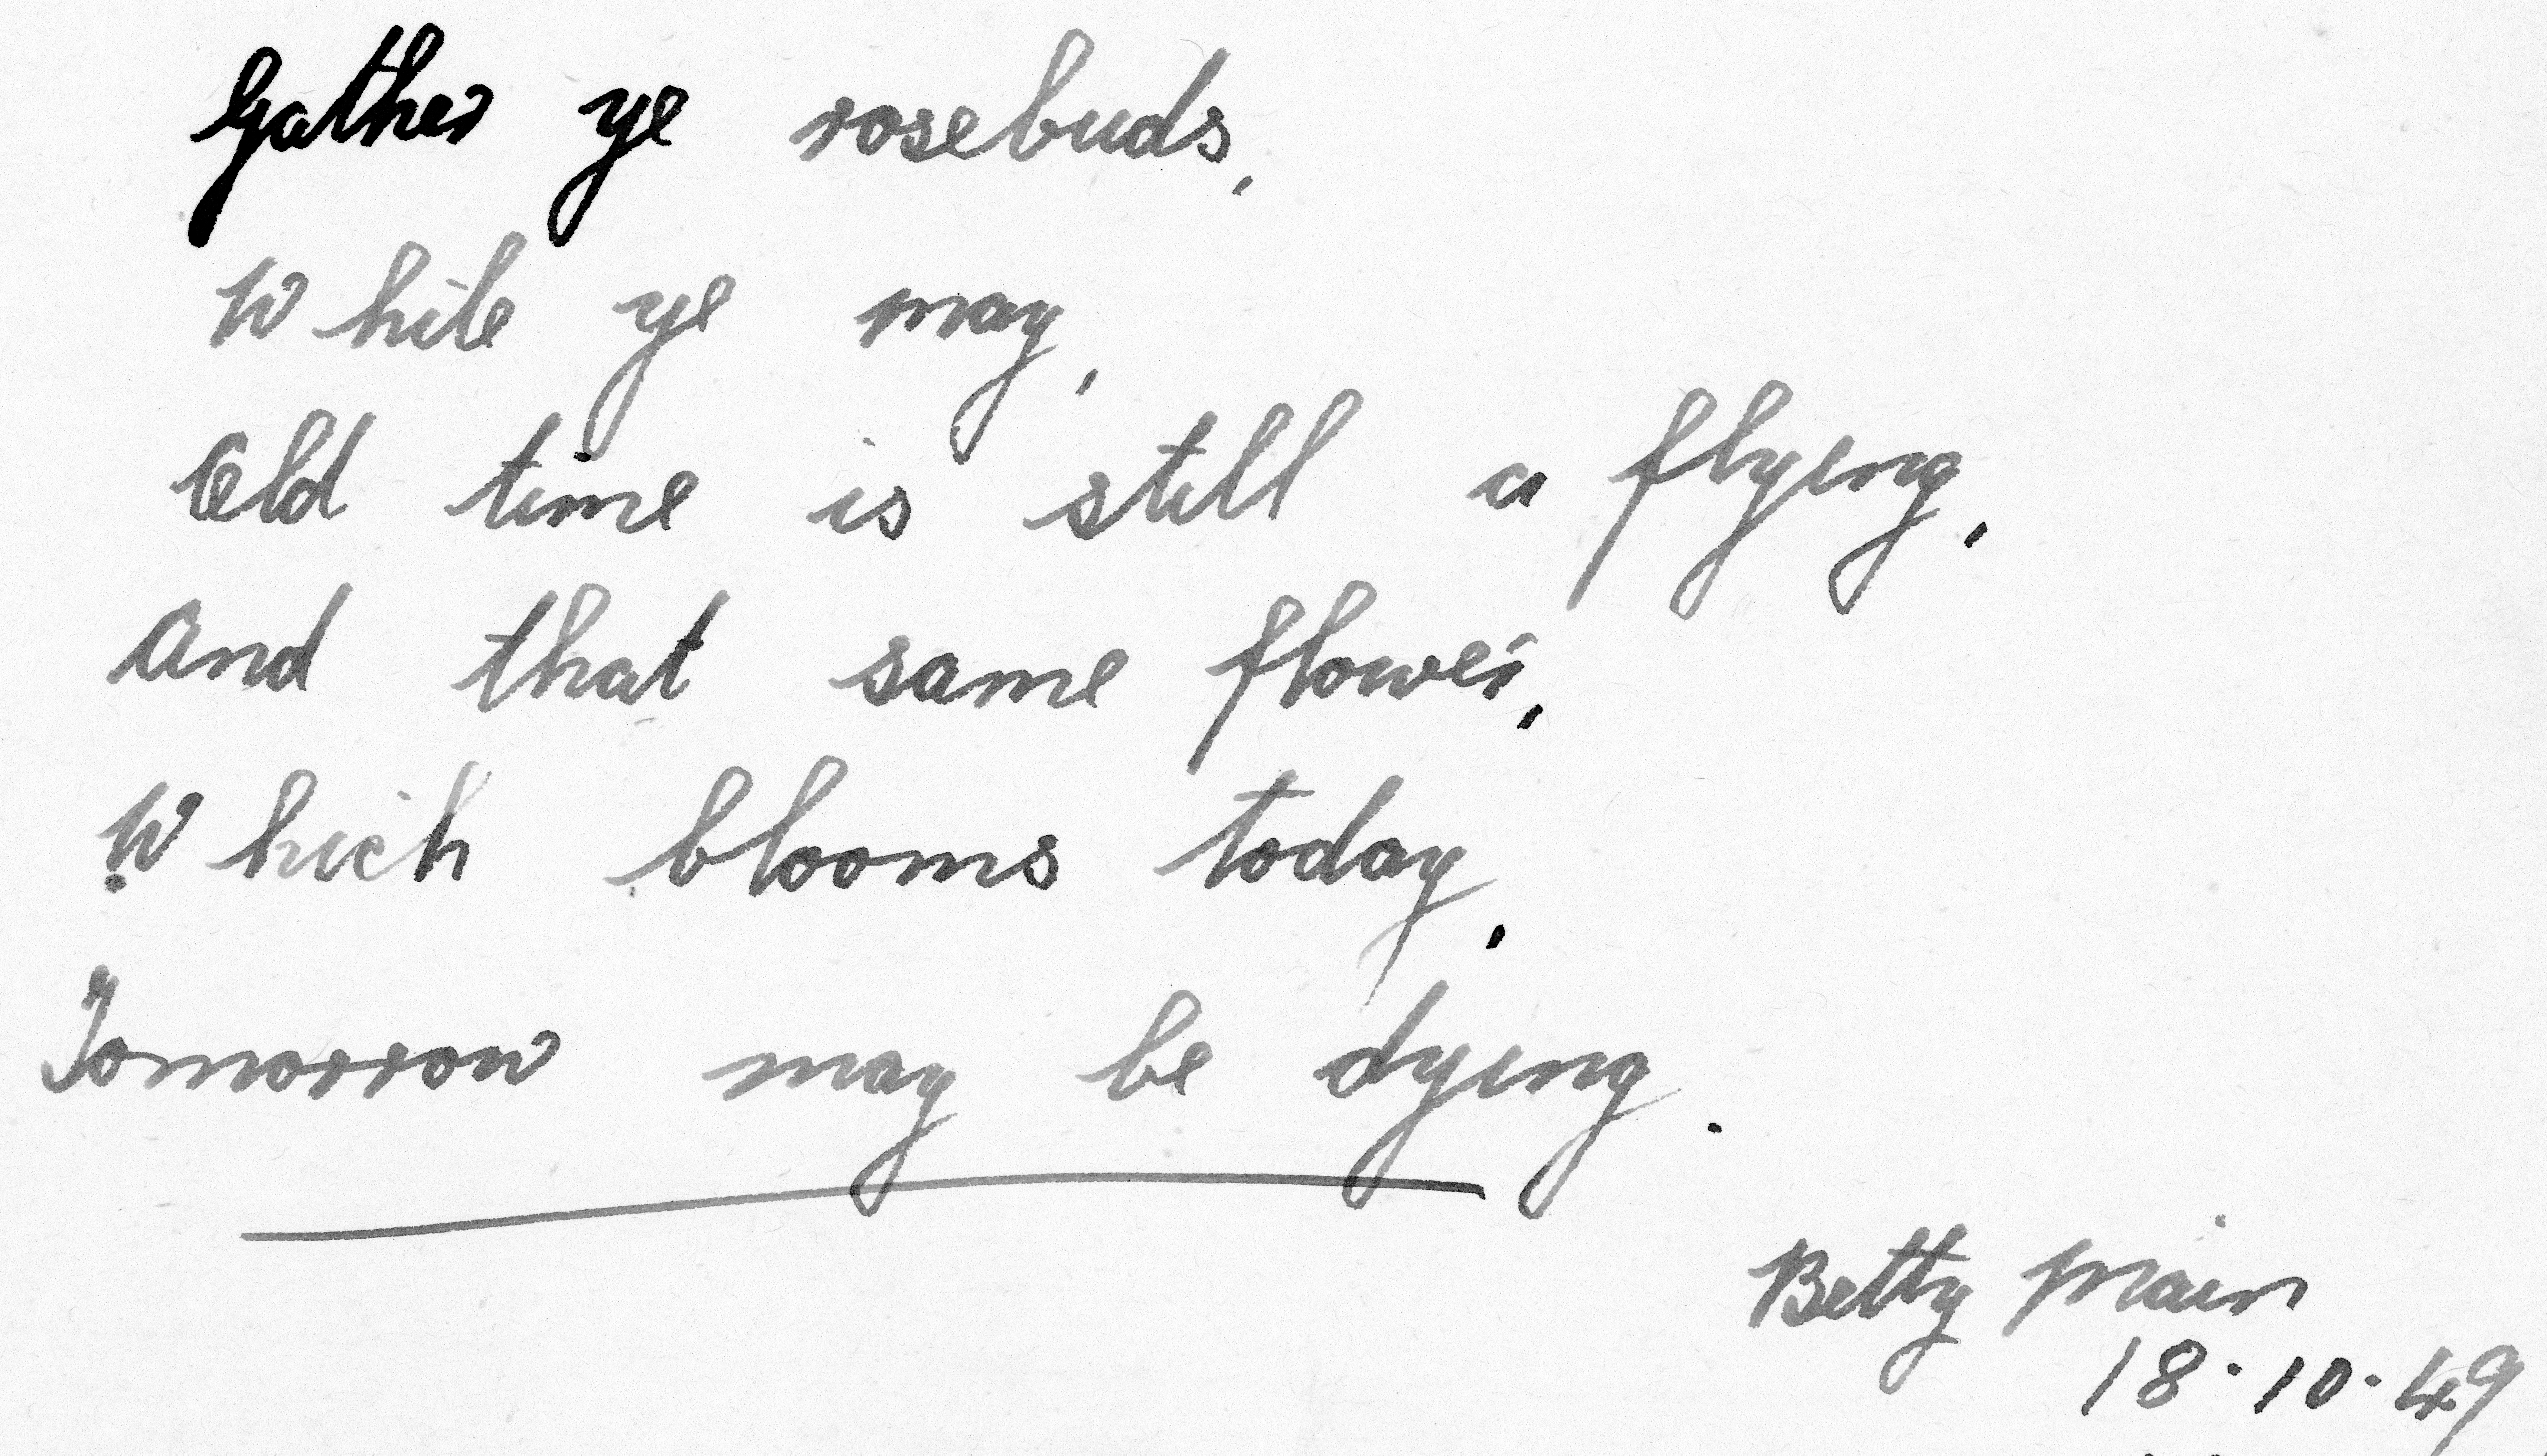 Gather ye rosebuds,
While ye may,
Old time is still a flying,
And that same flower,
Which blooms today,
Tomorrow may be dying.
Betty Main
18.10.49